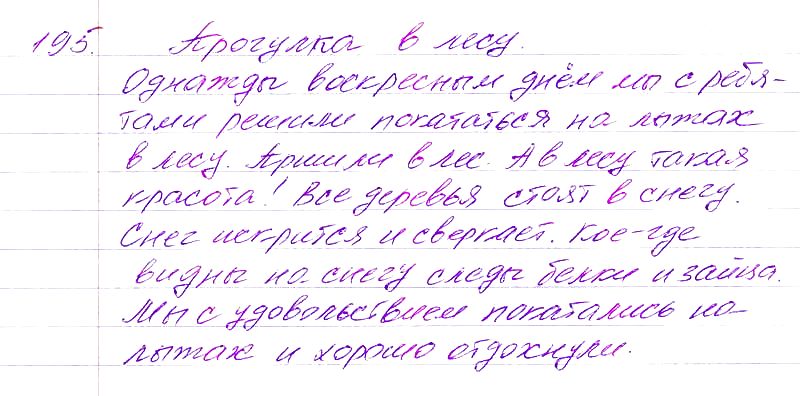 195. Прогулка в лесу.
Однажды воскресным днём мы с ребя-
тами решили покататься на лыжах
в лесу. Пришли в лес. А в лесу такая
красота! Все деревья стоят в снегу.
Снег искрится и сверкает. Кое-где
видны на снегу следы белки и зайца.
Мы с удовольствием покатались на
лыжах и хорошо отдохнули.